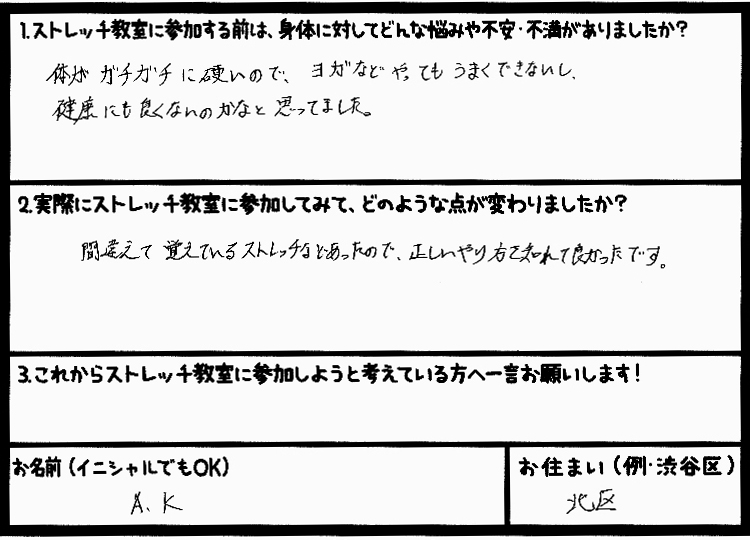 1.ストレッチ教室に参加する前は、身体に対してどんな悩みや不安・不満がありましたか?
体が ガチガチ に硬いので、 ヨガなど やってもうまくできないし、
健康にも良くないのかなと思ってました。
2.実際にストレッチ教室に参加してみて、どのような点が変わりましたか?
間違えて覚えているストレッチなどあったので、正しいやり方を知れて良かったです。
3.これからストレッチ教室に参加しようと考えている方へ一言お願いします!
お名前(イニシャルでもOK)
A.K
お住まい(例・渋谷区)
北区